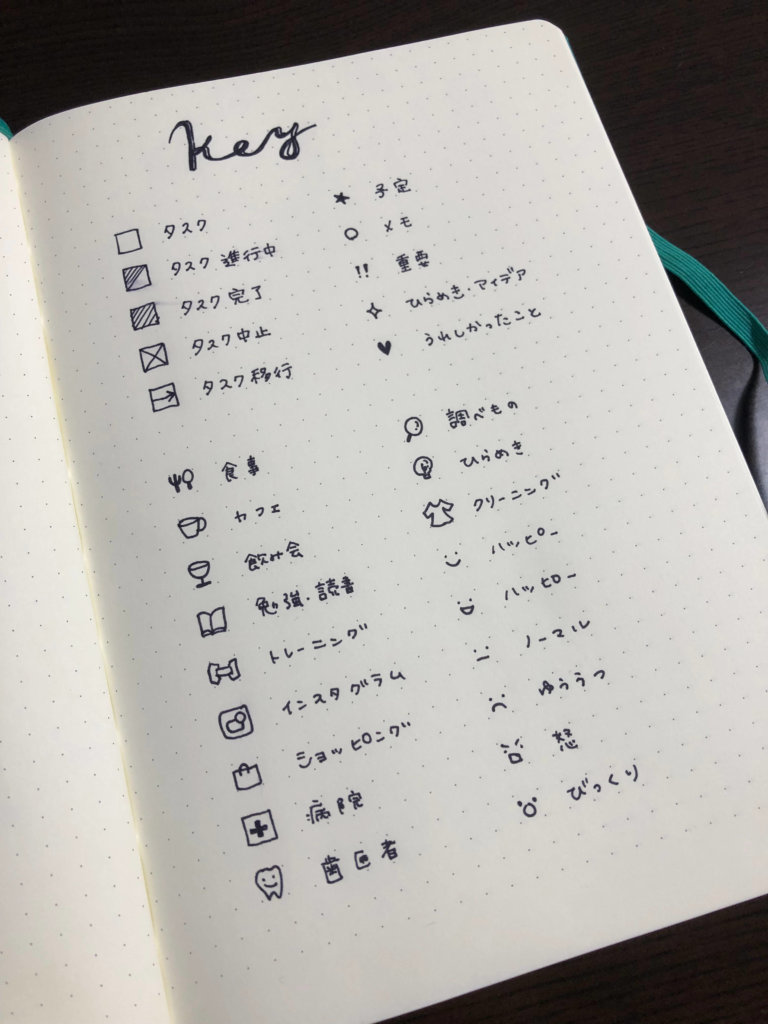 Key
タスク
タスク 進行中
タスク 完了
タスク中止
タスク移行
予定
メモ
!! 重要
ひらめき・アイデア
うれしかったこと
食事
カフェ
飲み会
勉強・読書
トレーニング
インスタグラム
ショッピング
病院
歯医者
調べもの
ひらめき
クリーニング
ハッピー
ハッピー
ノーマル
ゆううつ
怒
びっくり